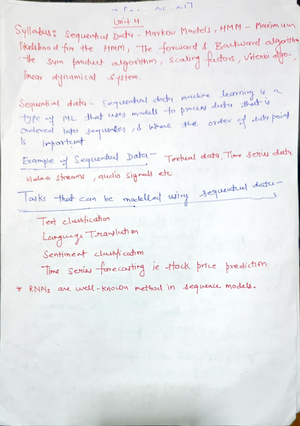 Unit 4
Syllabus: Sequential Data - Markov Models, HMM - Maximum
likelihood for the HMM, The forward & Backward algorithm
the sum product algorithm, scaling factors, Viterbi algo-
linear dynamical system.
Sequential data - Sequential data machine learning is a
type of ML that uses models to process data that is
ordered into sequences, & where the order of data point
is important
Example of Sequential Data - Textual data, Time series data,
streams, audio signals etc
Tasks that can be modelled using sequential data -
Text classification
Language Translation
Sentiment classification
Time series forecasting ie stock price prediction.
* RNNs are well-known method in sequence models.